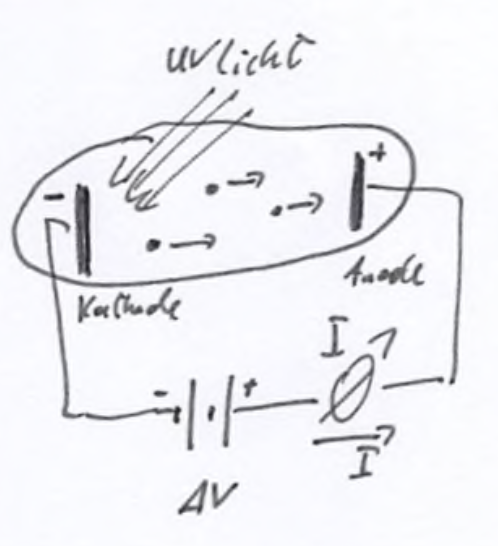 UV licht
- +
Kathode Anode
I
- +
I
ΔV